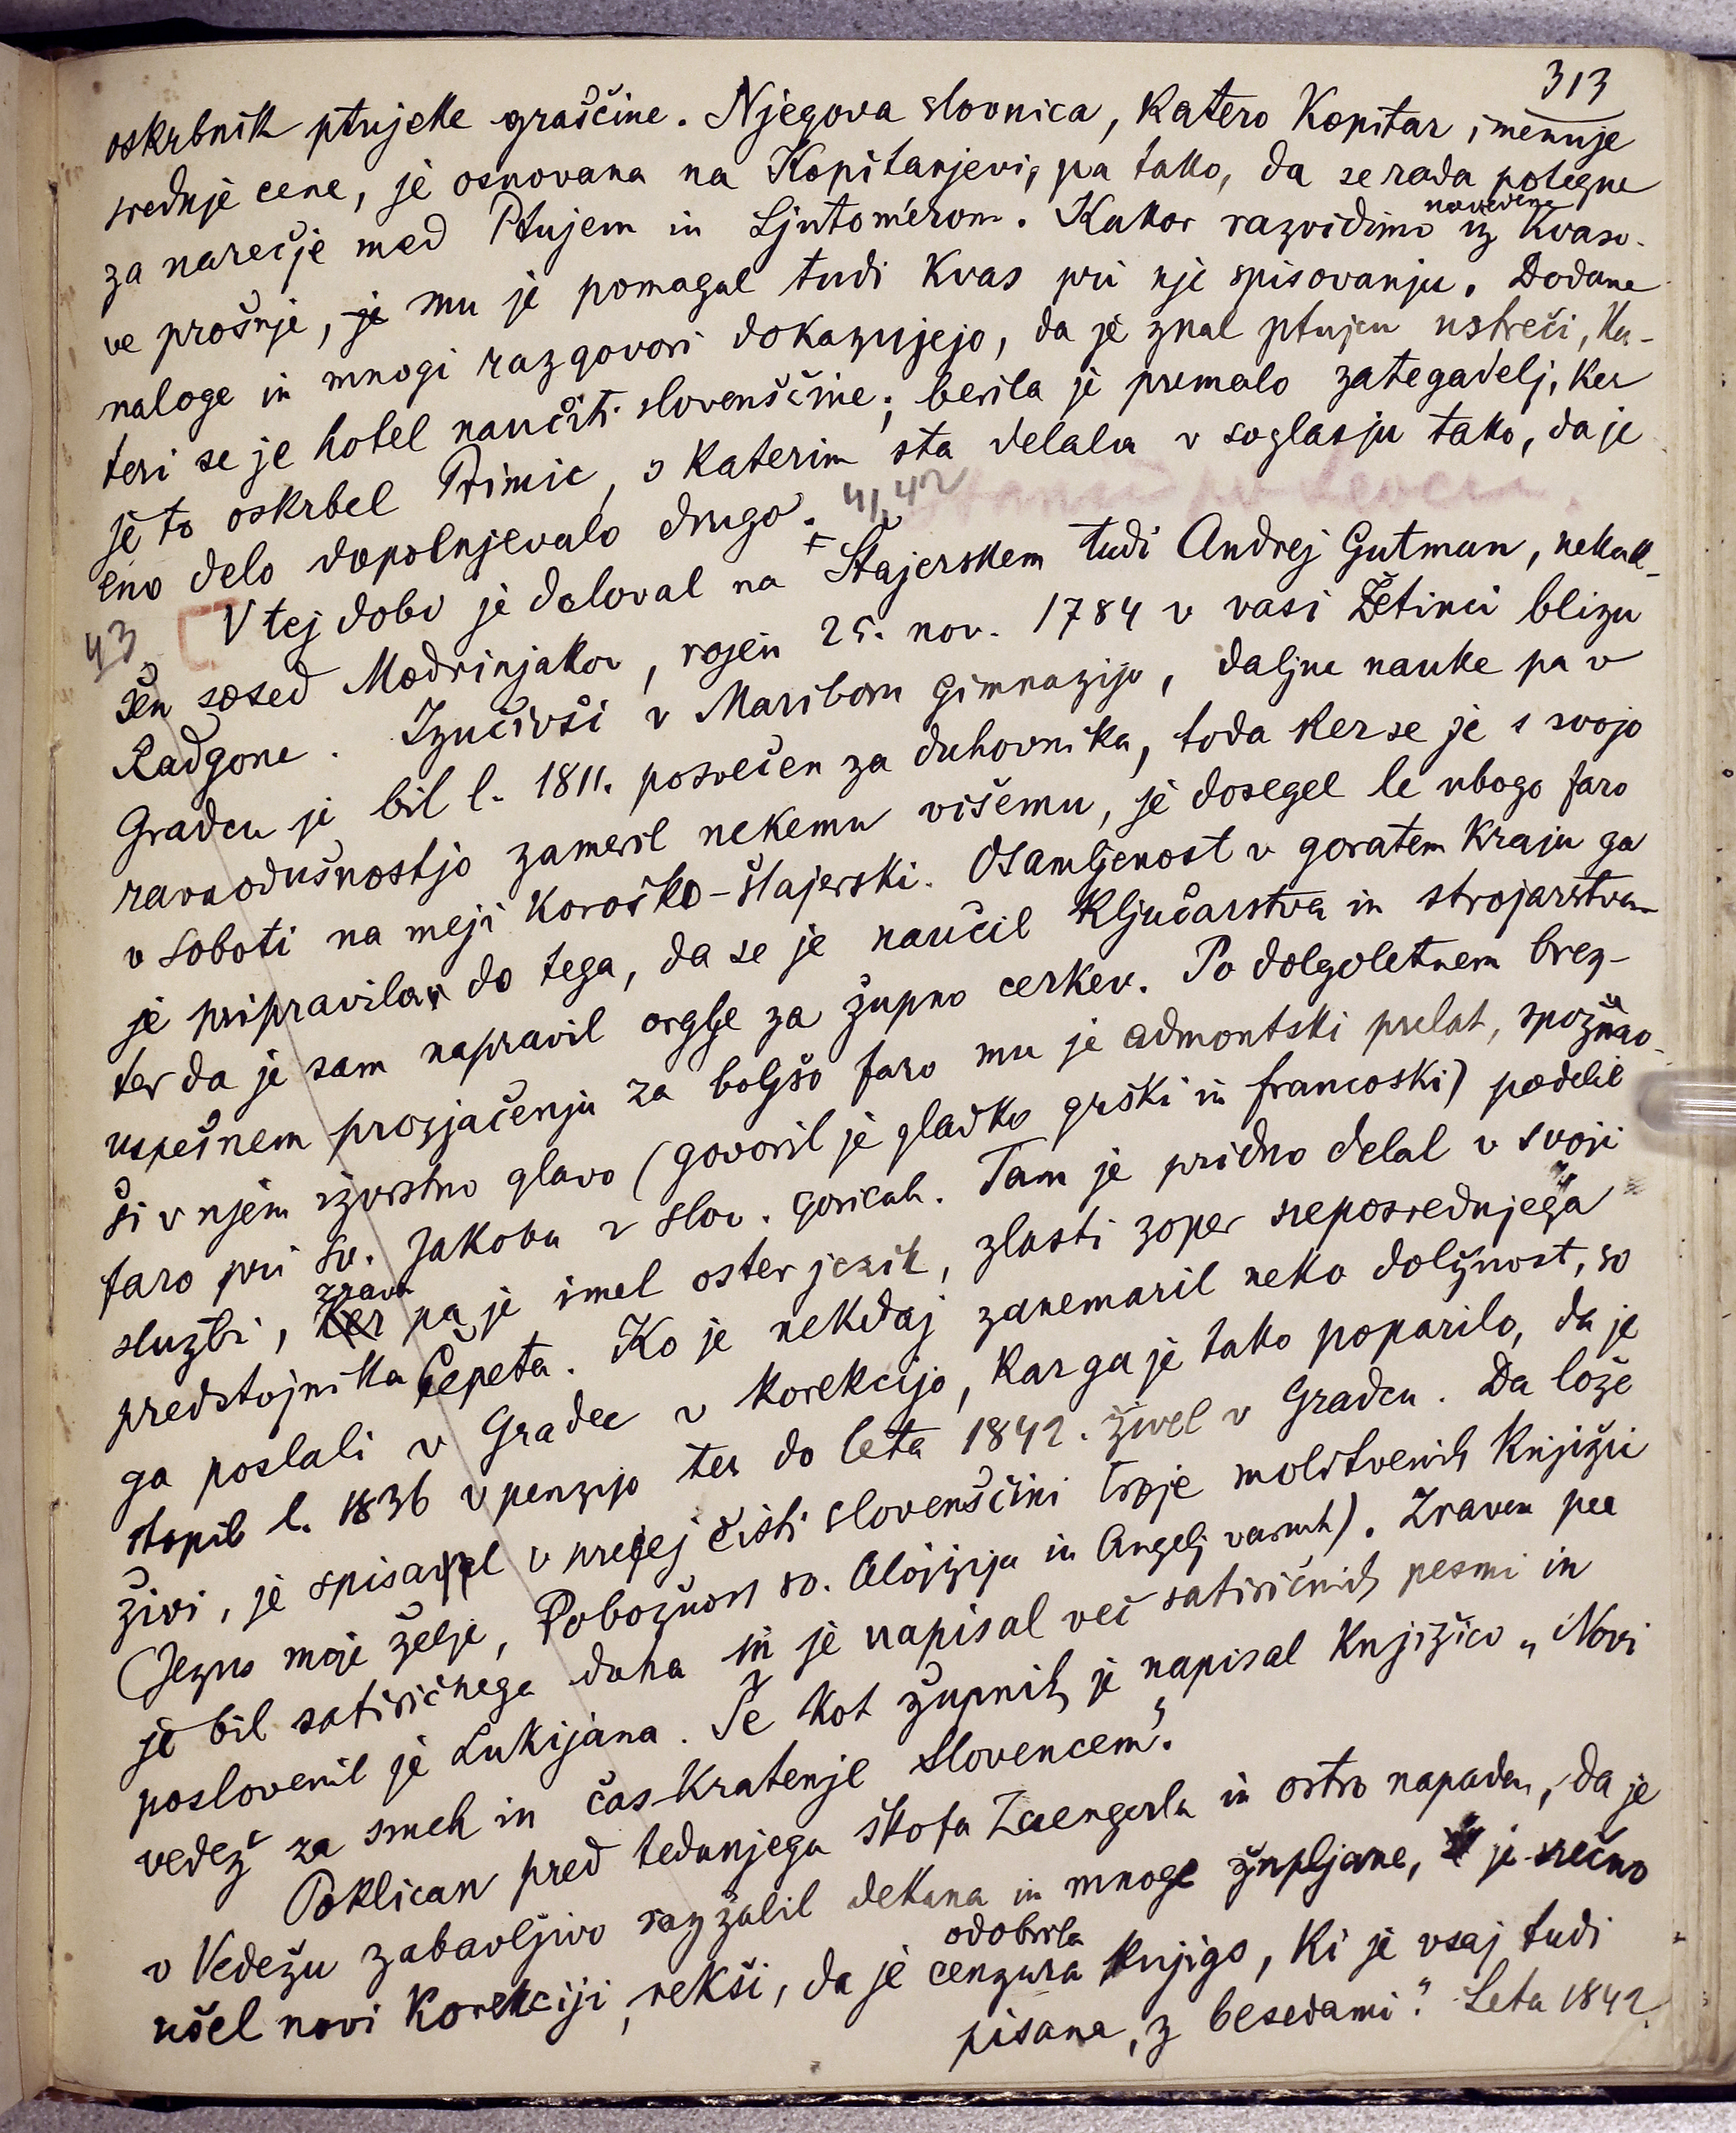 313
oskrbnik ptujske graščine. Njegova slovnica, katero Kopitar imenuje
srednje cene, je osnovana na Kopitarjevi, pa tako, da se rada potegne
za narečje med Ptujem in Ljutomerom. Kakor razvidimo iz navedene Kvaso-
ve prošnje, je mu je pomagal tudi Kvas pri nje spisovanju. Dodane
naloge in mnogi razgovori dokazujejo, da je znal ptujcu ustreči, ka-
teri se je hotel naučiti slovenščine; berila je premalo zategadelj, ker
je to oskrbel Primic, s katerim sta delala v soglasju tako, da je
eno delo dopolnjevalo drugo. 41, 42
43 V tej dobi je deloval na Štajerskem tudi Andrej Gutman, nekak-
šen sosed Modrinjakov, rojen 25. nov. 1784 v vasi Žetinci blizu
Radgone. Izučivši v Mariboru gimnazijo, daljne nauke pa v
Gradcu je bil l. 1811. posvečen za duhovnika, toda ker se je s svojo
ravnodušnostjo zameril nekemu višemu, je dosegel le ubogo faro
v Soboti na meji koroško-štajerski. Osamljenost v goratem kraju ga
je pripravila do tega, da se je naučil ključarstva in strojarstva
ter da je sam napravil orglje za župno cerkev. Po dolgoletnem brez-
uspešnem prosjačenju za boljšo faro mu je admontski prelat, spoznav-
ši v njem izvrstno glavo (govoril je gladko grški in francoski) podelil
faro pri sv. Jakobu v Slov. goricah. Tam je pridno delal v svoji
službi, zraven pa je imel oster jezik, zlasti zoper neposrednjega
predstojnika Čepeta. Ko je nekdaj zanemaril neko dolžnost, so
ga poslali v Gradec v korekcijo, kar ga je tako poparilo, da je
stopil l. 1836 v penzijo ter do leta 1842. živel v Gradcu. Da lože
živi, je spisal v precej čisti slovenščini troje molitvenih knjižic
(Jezus moje želje, Pobožnost sv. Alojzija in Angelj varuh). Zraven pa
je bil satiričnega duha in je napisal več satiričnih pesmi in
poslovenil je Lukijana. Še kot župnik je napisal knjižico „Novi
vedež za smeh in čas kratenje Slovencem“.
Poklican pred tedanjega škofa Zaengerla in ostro napaden, da je
v Vedežu zabavljivo razžalil dekana in mnoge župljane, je srečno
ušel novi korekciji, rekši, da je cenzura odobrila knjigo, ki je vsaj tudi
pisana, z besedami“. Leta 1842.